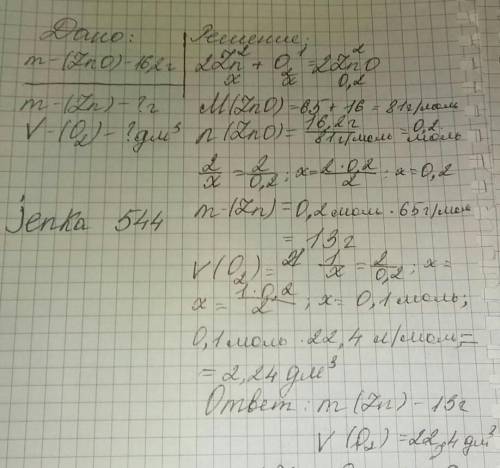 Дано:
m-(ZnO)-16,2г
m-(Zn)-?г
V-(O₂)-?дм³
jenka 544
Решение;
2 1 2
2Zn + O₂ = 2ZnO
x x 0,2
M(ZnO)=65+16=81г/мом
n(ZnO)=16,2г/81г/моль=0,2 моль
2/x=2/0,2; x=2·0,2/2; x=0,2
m-(Zn)=0,2мом·65г/мом
=13г
V(O₂)= 1/x=2/0,2; x=
x=1·0,2/2; x=0,1моль;
0,1моль·22,4л/мом=
=2,24дм³
Ответ: m(Zn)-13г
V(O₂)=22,4дм³